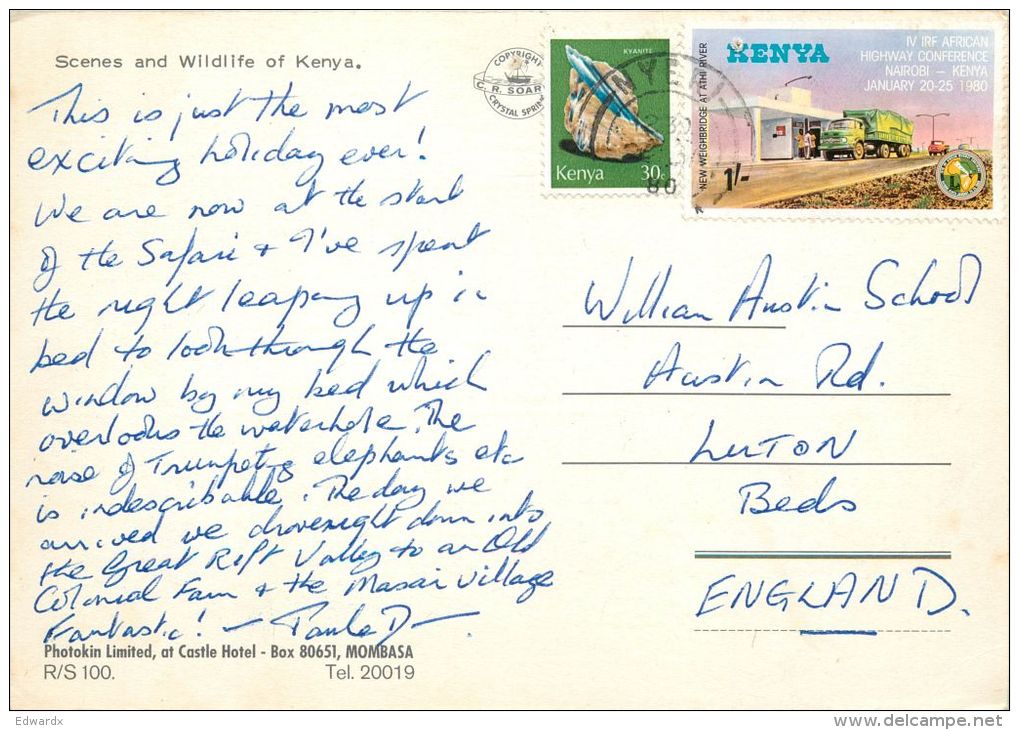 Scenes and Wildlife of Kenya.
This is just the most
exciting holiday ever!
We are now at the start
of the Safari + I've spent
the night leaping up in
bed to look through the
window by my bed which
overlooks the waterhole. The
noise of Trumpeting elephants etc
is indescribable. The day we
arrived we drove right down into
the Great Rift Valley to an Old
Colonial Farm + the Masai village
Fantastic! - Paula D -
Photokin Limited, at Castle Hotel - Box 80651, MOMBASA
R/S 100. Tel. 20019
COPYRIGHT
C. R. SOAR
CRYSTAL SPRIN
KYANITE
Kenya 30c
NYERI
80
KENYA
IV IRF AFRICAN
HIGHWAY CONFERENCE
NAIROBI - KENYA
JANUARY 20-25 1980
NEW WEIGHBRIDGE AT ATHI RIVER
1/-
William Austin School
Austin Rd.
LUTON
Beds
ENGLAND.
Edwardx
www.delcampe.net